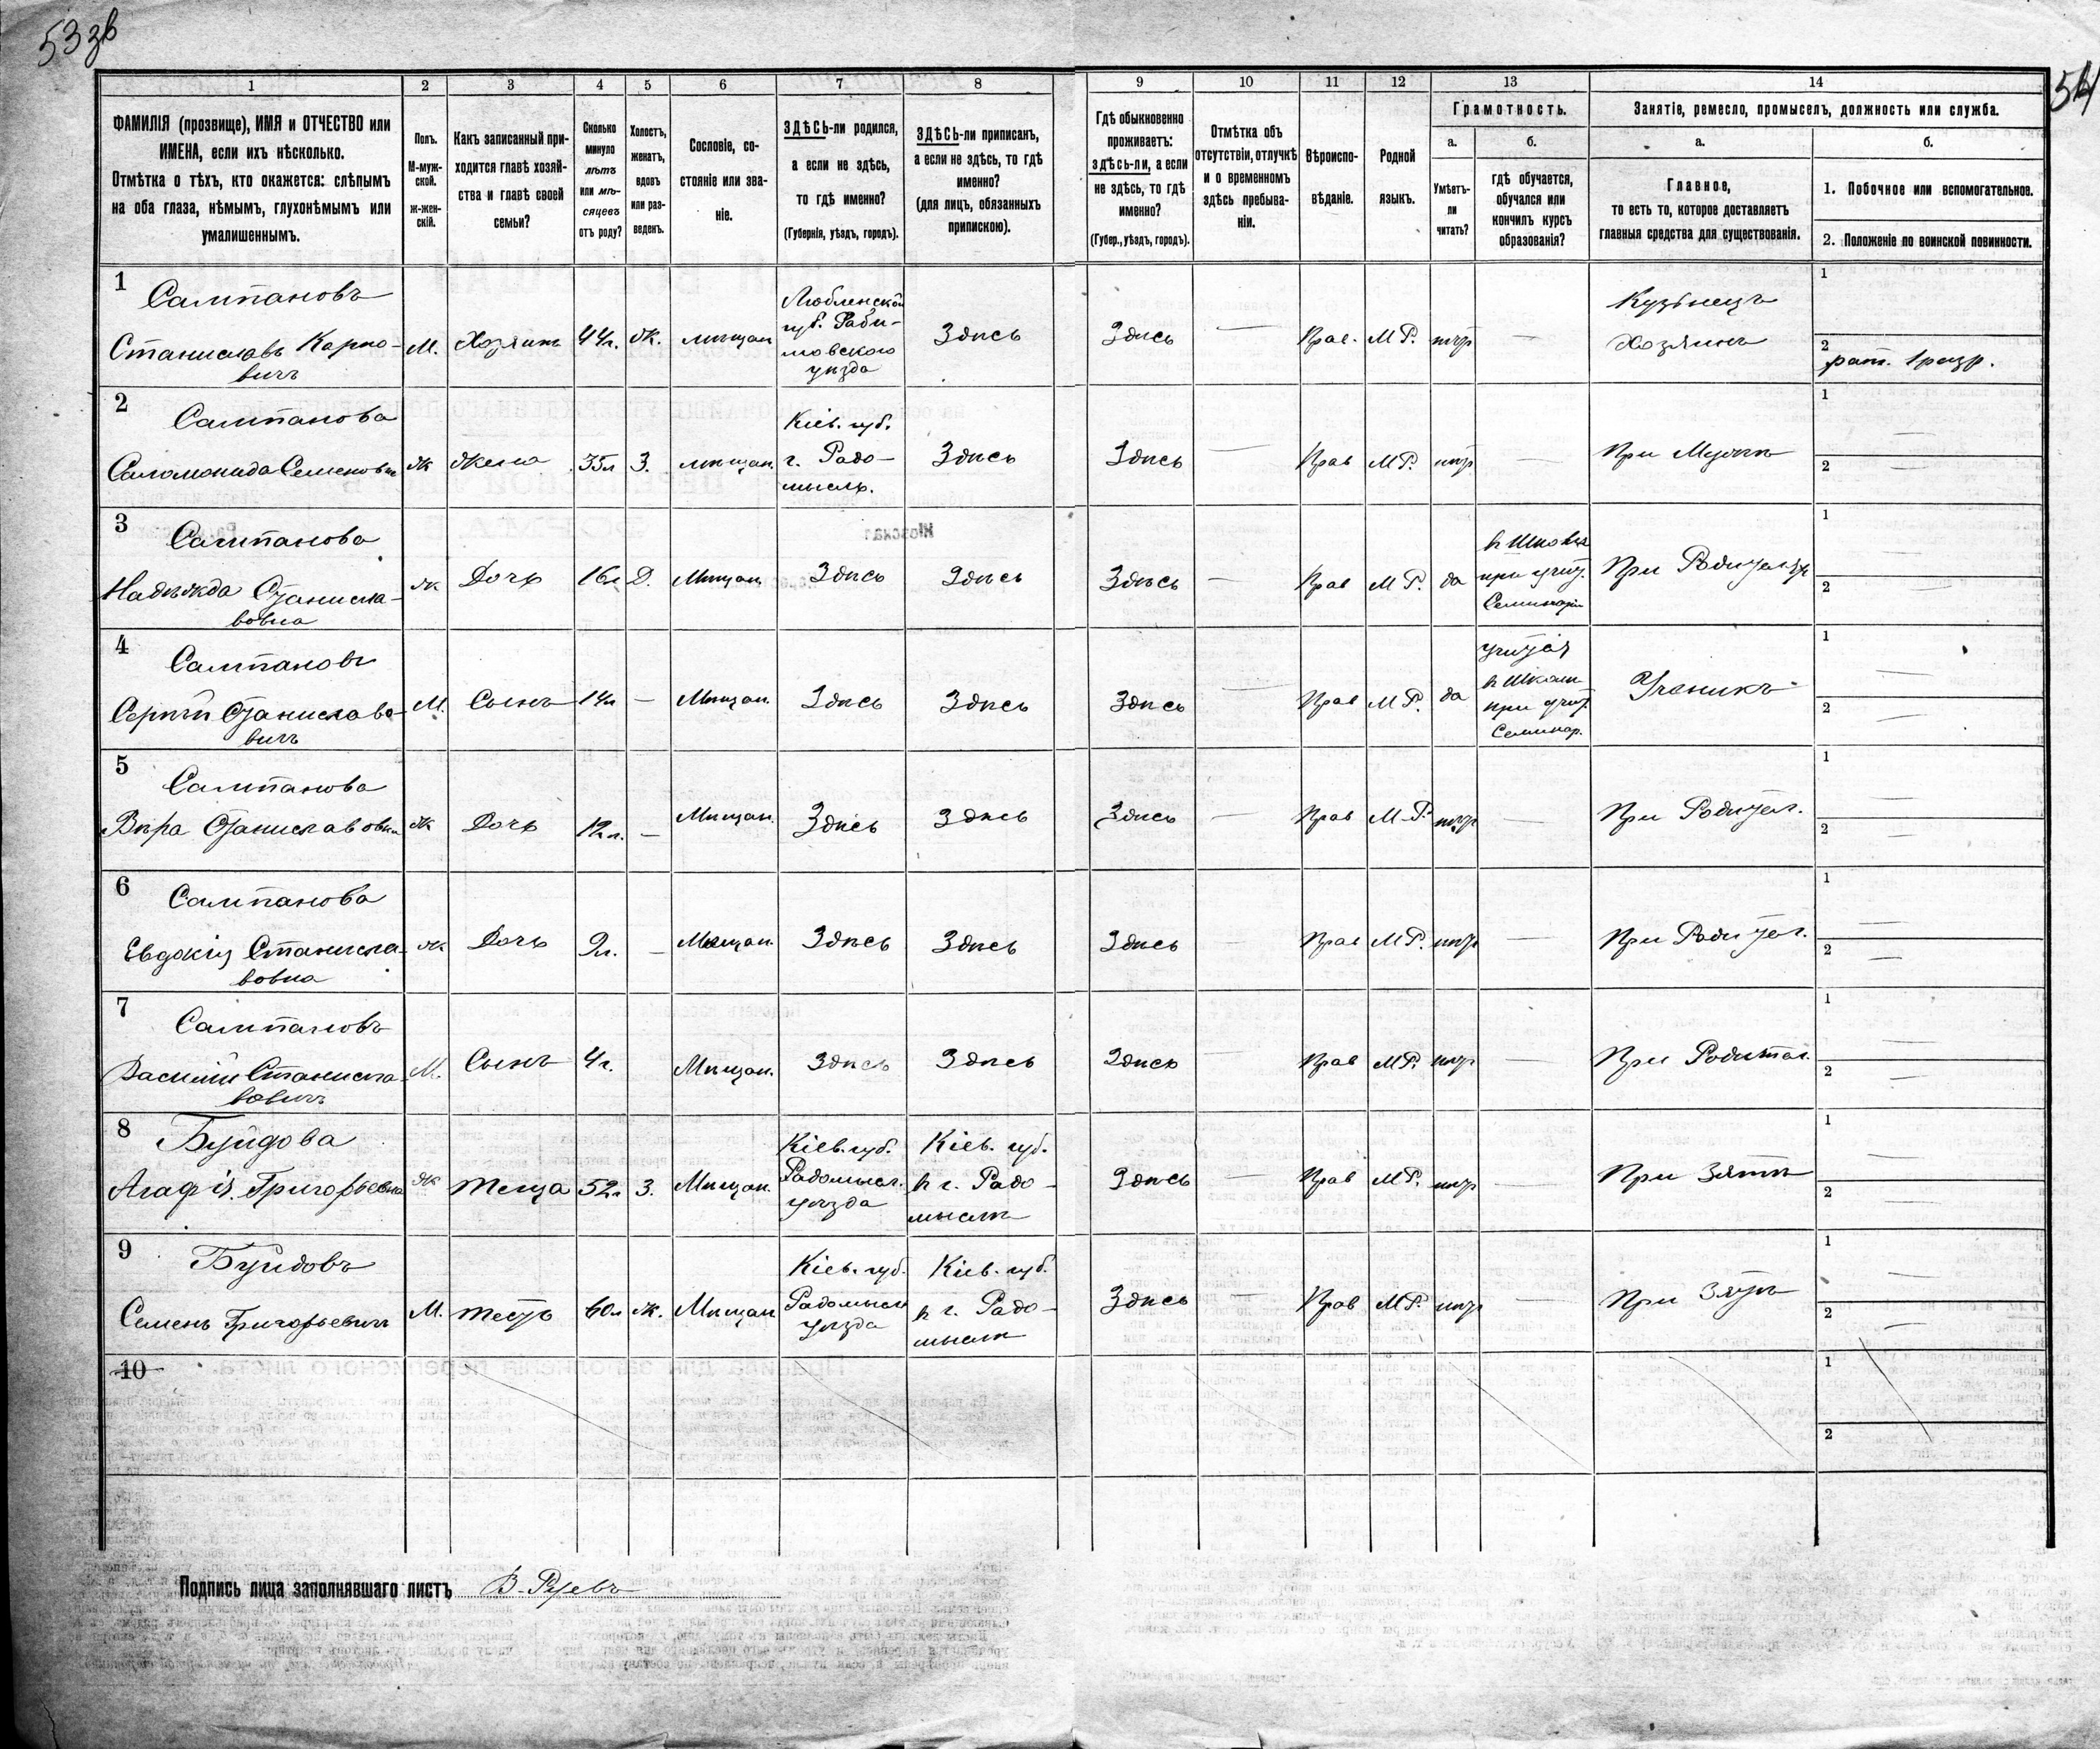 53 зв
54
1
2
3
4
5
6
7
8
9
10
11
12
13
14
ФАМИЛІЯ (прозвище), ИМЯ и ОТЧЕСТВО или
ИМЕНА, если ихъ нѣсколько.
Отмѣтка о тѣхъ, кто окажется: слѣпымъ
на оба глаза, нѣмымъ, глухонѣмымъ или
умалишеннымъ.
Полъ.
М-муж-
ской.
Ж-жен-
скій.
Какъ записанный при-
ходится главѣ хозяй-
ства и главѣ своей
семьи?
Сколько
минуло
лѣтъ
или мѣ-
сяцевъ
отъ роду?
Холостъ,
женатъ,
вдовъ
или раз-
веденъ.
Сословіе, со-
стояніе или зва-
ніе.
ЗДѢСЬ-ли родился,
а если не здѣсь,
то гдѣ именно?
(Губернія, уѣздъ, городъ).
ЗДѢСЬ-ли приписанъ,
а если не здѣсь, то гдѣ
именно?
(для лицъ, обязанныхъ
припискою).
Гдѣ обыкновенно
проживаетъ:
здѣсь-ли, а если
не здѣсь, то гдѣ
именно?
(Губер., уѣздъ, городъ).
Отмѣтка объ
отсутствіи, отлучкѣ
и о временномъ
здѣсь пребыва-
ніи.
Вѣроиспо-
вѣданіе.
Родной
языкъ.
Грамотность.
а.
Умѣетъ-
ли
читать?
б.
гдѣ обучается,
обучался или
кончилъ курсъ
образованія?
Занятіе, ремесло, промыселъ, должность или служба.
а.
Главное,
то есть то, которое доставляетъ
главныя средства для существованія.
б.
1. Побочное или вспомогательное.
2. Положеніе по воинской повинности.
1
Салтановъ
Станиславъ Карпо-
вичъ
М.
Хозяинъ
44г.
Ж.
мѣщан
губ.
уѣзда
Здѣсь
Здѣсь
—
Прав.
М Р.
нѣтъ
—
Кузнецъ
Хозяинъ
1
2
рат. 1 разр.
2
Салтанова
Саломонида Семеновн
Ж
Жена
35л
З.
мѣщан.
Кіев. губ.
г. Радо-
мысль.
Здѣсь
Здѣсь
—
Прав
М Р.
нѣтъ
—
При Мужѣ
1
2
3
Салтанова
Надежда Станисла-
вовна
Ж
Дочь
16л
Д.
Мѣщан
Здѣсь
Здѣсь
Здѣсь
—
Прав
М Р.
да
в Школѣ
при учит.
Семинаріи
При Родителях
1
2
4
Салтановъ
Сергѣй Станиславо-
вичъ
М.
Сынъ
14л
—
Мѣщан.
Здѣсь
Здѣсь
Здѣсь
Прав
М Р.
да
учится
в Школѣ
при учит.
Семинар.
Ученикъ
1
2
5
Салтанова
Вѣра Станиславовна
Ж
Дочь
12л.
—
Мѣщан.
Здѣсь
Здѣсь
Здѣсь
—
Прав
М-Р.
нѣтъ
—
При Родител.
1
2
6
Салтанова
Евдокія Станисла-
вовна
Ж
Дочь
9л.
—
Мѣщан.
Здѣсь
Здѣсь
Здѣсь
—
Прав
М Р.
нѣтъ
—
При Родител.
1
2
7
Салтановъ
Василій Станисла-
вовичъ
М.
Сынъ
4г.
Мѣщан.
Здѣсь
Здѣсь
Здѣсь
—
Прав
М Р.
нѣтъ
—
При Родител.
1
2
8
Буйдова
Агафія Григорьевна
Ж
Теща
52г
З.
Мѣщан.
Кіев. губ.
Радомысл.
уѣзда
Кіев. губ.
в г. Радо-
мыслѣ
Здѣсь
—
Прав
М Р.
нѣтъ
—
При Зятѣ
1
2
9
Буйдовъ
Семенъ Григорьевич
М.
Тесть
60л
Ж.
Мѣщан
Кіев. губ.
Радомысл
уѣзда
Кіев. губ.
в г. Радо-
мыслѣ
Здѣсь
—
Прав
М Р.
нѣтъ
—
При Зятѣ
1
2
10
1
2
Подпись лица заполнявшаго листъ